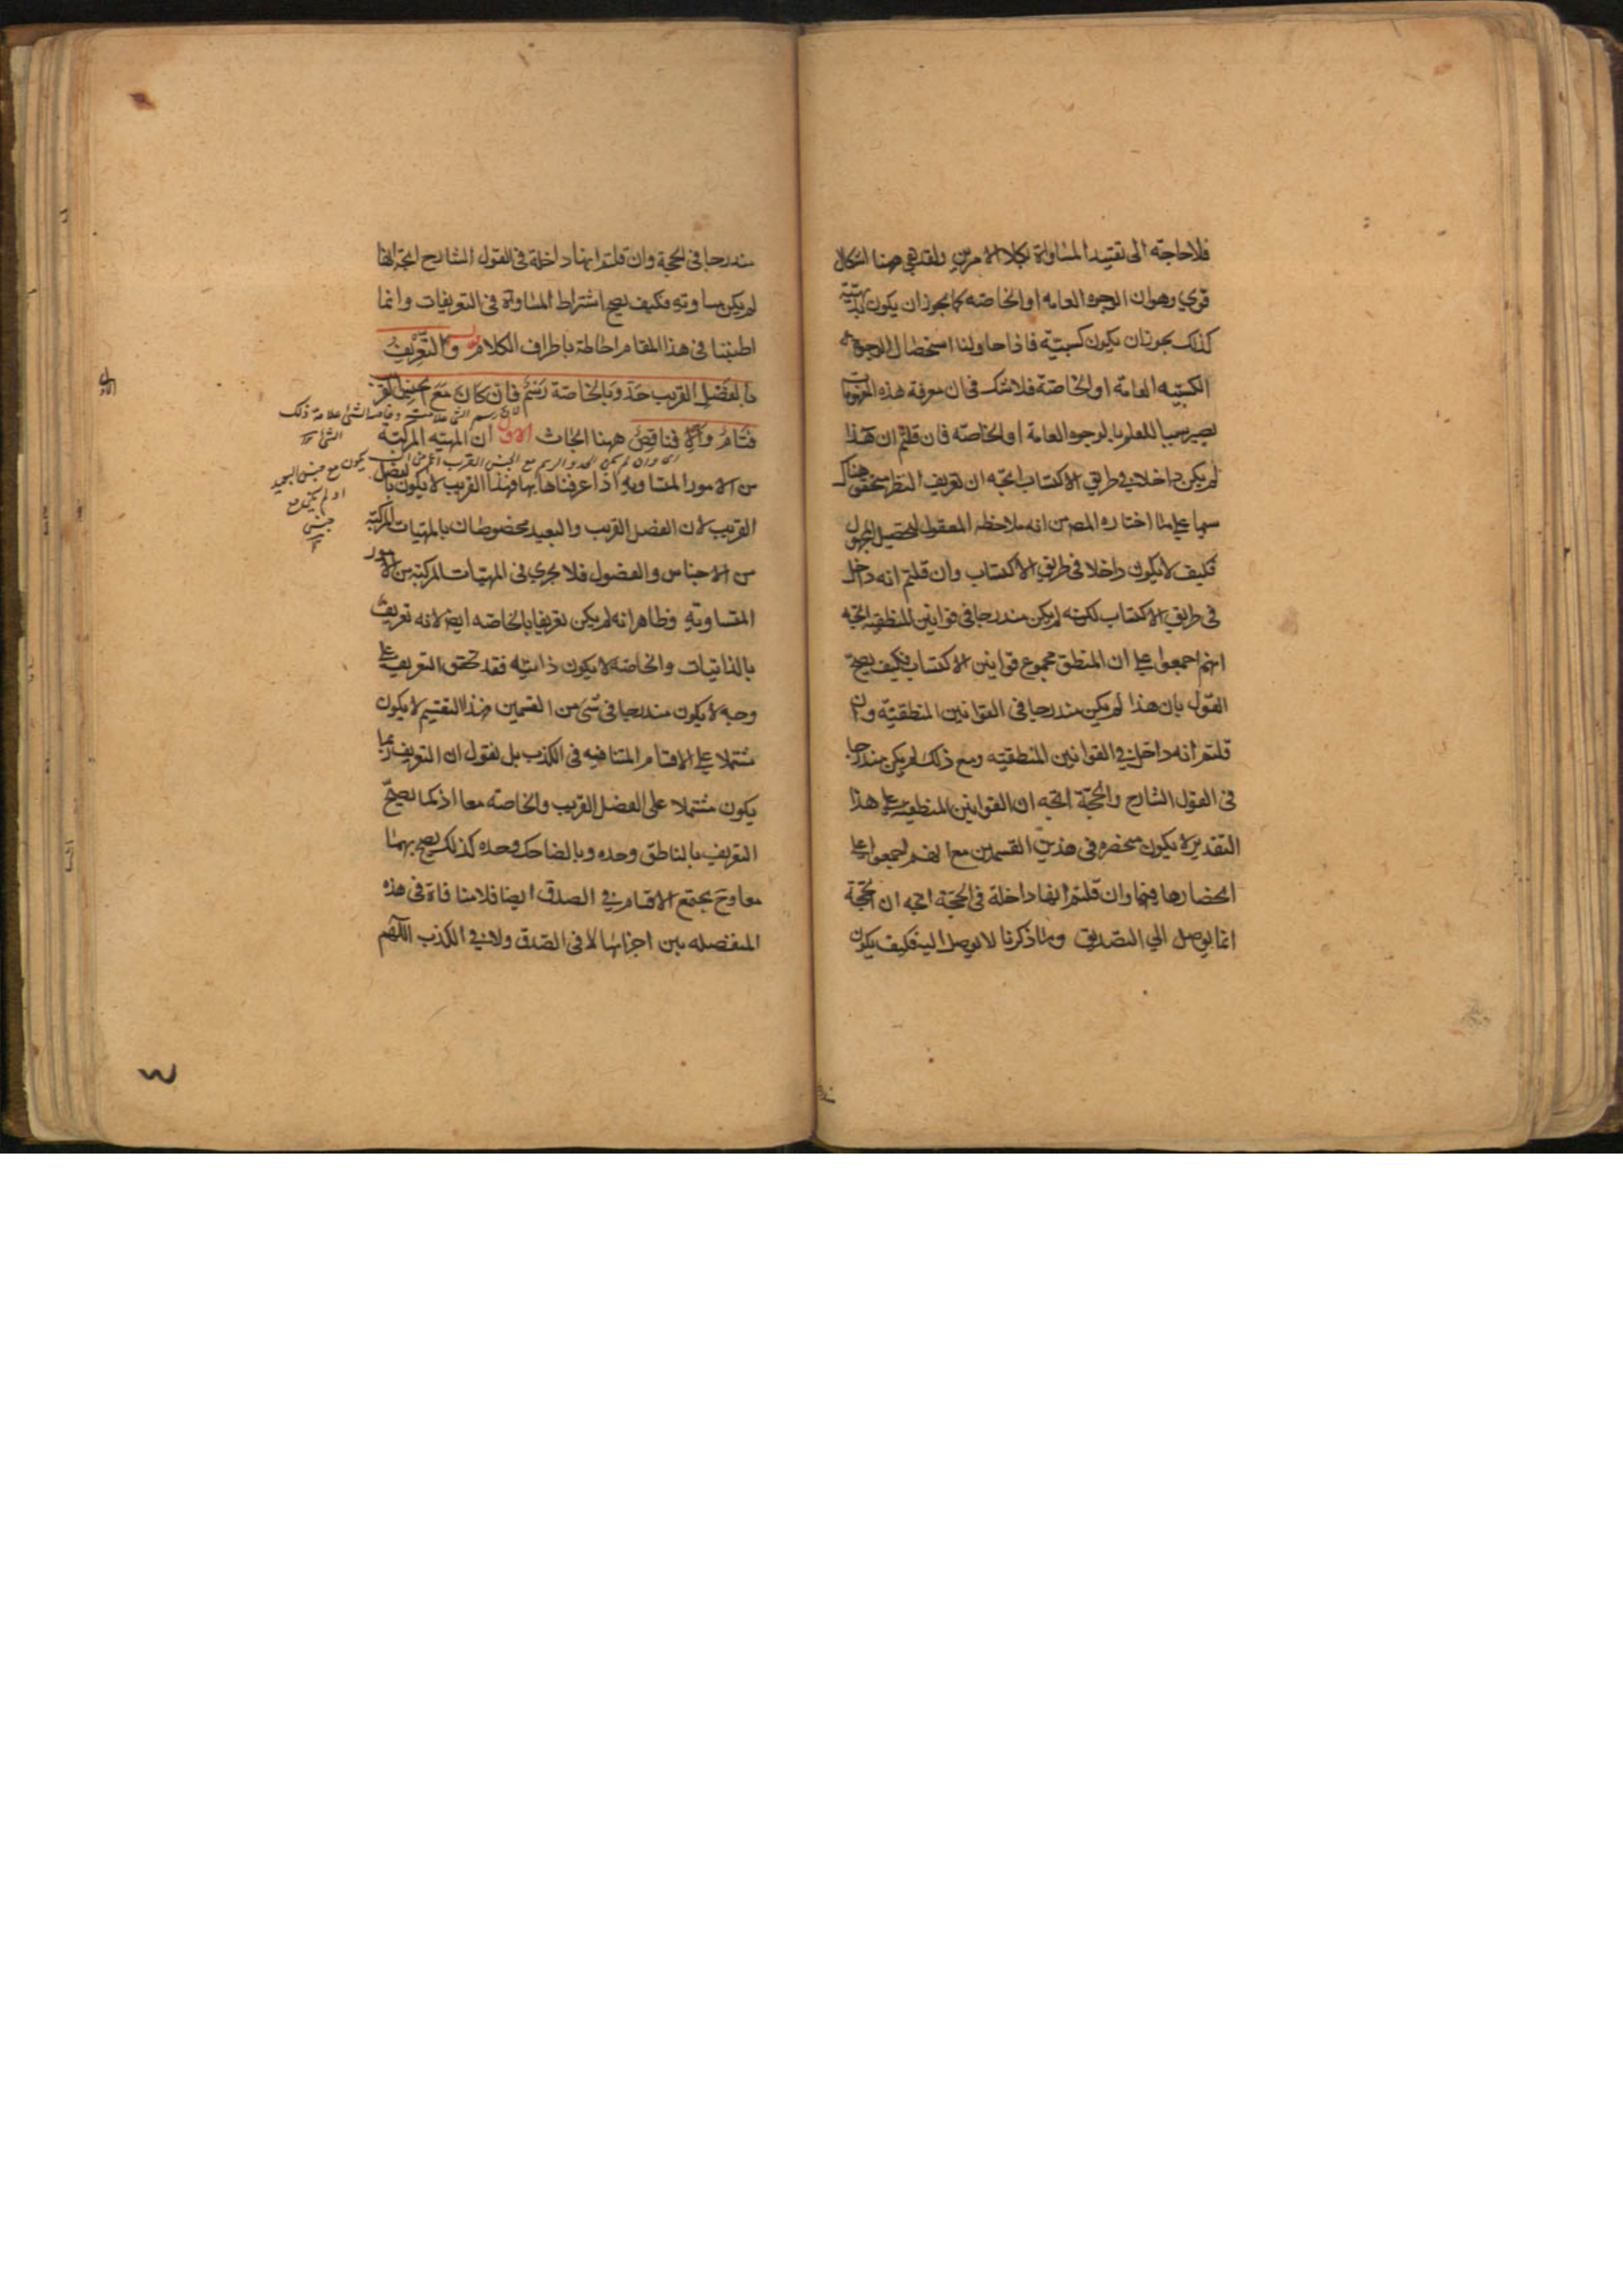 فلا حاجة الى تقييد المساواة بكلا الامرين ولقد بقي ههنا اشكال
قوي وهو ان الوجوه العامه او الخاصه كما يجوز ان يكون بديهيته
كذلك يجوز ان يكون كسبيّه فاذا حاولنا استحضال الوجوه
الكسبيه العامة او الخاصة فلا شك في ان معرفة هذه
يصير سببا للعلم بالوجوه العامة او الخاصّه فان قلتم ان هذا
لم يكن داخلا في طريق الاكتساب اتجه ان تعريف النظر متحقق هناك
سيما على ما اختاره المص من انه ملاحظه المعقول لتحصيل المجهول
فكيف لا يكون داخلا في طريق الاكتساب وان قلتم انه داخل
في طريق الاكتساب لكنه لم يكن مندرجا في قوانين المنطقيه اتجه
انهم اجمعوا على ان المنطق مجموع قوانين الاكتساب فكيف يصح
القول بان هذا لم يكن مندرجا في القوانين المنطقيّه وان
قلتم انه داخل في القوانين المنطقيه ومع ذلك لم يكن مندرجا
في القول الشارح والحجّة اتجه ان القوانين المنطقيه على هذا
التقدير لا يكون منحصره في هذين القسمين مع انهم اجمعوا على
انحصارها فيهما وان قلتم انها داخلة في الحجّة اتجه ان الحجّة
انما يوصل الي التصديق وما ذكرنا لا يوصل اليه فكيف يكون
مندرجا في الحجة وان قلتم انها داخلة في القول الشارح اتجه انها
لم يكن مساويه فكيف يصح اشتراط المساواة في التعريفات وانما
اطنبنا في هذا المقام احاطة باطراف الكلام والتعريف
بالفصل القريب حدّ وبالخاصّة رسم فان كان مع الجنس القريب
فتام والا فناقص ههنا ابحاث الاول ان المهيه المركبة
من الامور المتساويه اذا عرفناها بها فهذا القريب لا يكون بالفصل
القريب لان الفصل القريب والبعيد مخصوصان بالمهيات المركبّه
من الاجناس والفصول فلا يجري في المهيّات المركبّه من الامور
المتساويةِ وظاهر انه لم يكن تعريفا بالخاصّه ايضا لانه تعريف
بالذاتيات والخاصّه لا يكون ذاتيّه فقد تحقق التعريف على
وجه لا يكون مندرجا في شئ من القسمين فهذا التقسيم لا يكون
مشتملا على الاقسام المتنافيه في الكذب بل نقول ان التعريف ربما
يكون مشتملا على الفصل القريب والخاصّه معا اذ كما يصحّ
التعريف بالناطق وحده وبالضاحك وحده كذلك يصح بهما
معا وح يجتمع الاقسام في الصدق ايضا فلا منافاة في هذه
المنفصله بين اجزائها لا في الصّدق ولا في الكذب اللّهم
رسم الشئ علامته وخاصة الشئ علامة ذلك
الشئ
اى وان لم يكن الحد والرسم مع الجنس القريب اعم من ان
يكون مع جنس البعيد
او لم يكن مع
جنس